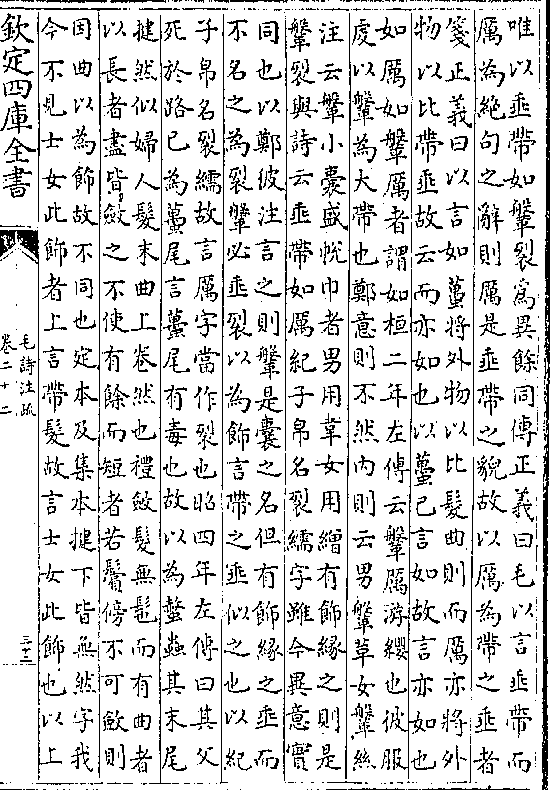 唯以垂帶如鞶裂爲異餘同傳正義曰毛以言垂帶而
厲為絶句之辭則厲是垂帶之貌故以厲為帶之垂者
箋正義曰以言如蠆將外物以比髮曲則而厲亦將外
物以比帶垂故云而亦如也以蠆已言如故言亦如也
如厲如鞶厲者謂如桓二年左傳云鞶厲游纓也彼服
虔以鞶為大帶也鄭意則不然内則云男鞶革女鞶絲
注云鞶小囊盛帨巾者男用韋女用繒有飾緣之則是
鞶裂與詩云垂帶如厲紀子帛名裂繻字雖今異意實
同也以鄭彼注言之則鞶是囊之名但有飾緣之垂而
不名之為裂鞶必垂裂以為飾言帶之垂似之也以紀
子帛名裂繻故言厲字當作裂也昭四年左傳曰其父
死於路已為蠆尾言蠆尾有毒也故以為螫蟲其末尾
揵然似婦人髮末曲上卷然也禮斂髮無髢而有曲者
以長者盡皆斂之不使有餘而短者若鬢傍不可斂則
因曲以為飾故不同也定本及集本揵下皆無然字我
今不見士女此飾者上言帶髮故言士女此飾也以上
欽定四庫全書
毛詩注疏
卷二十二
三十二